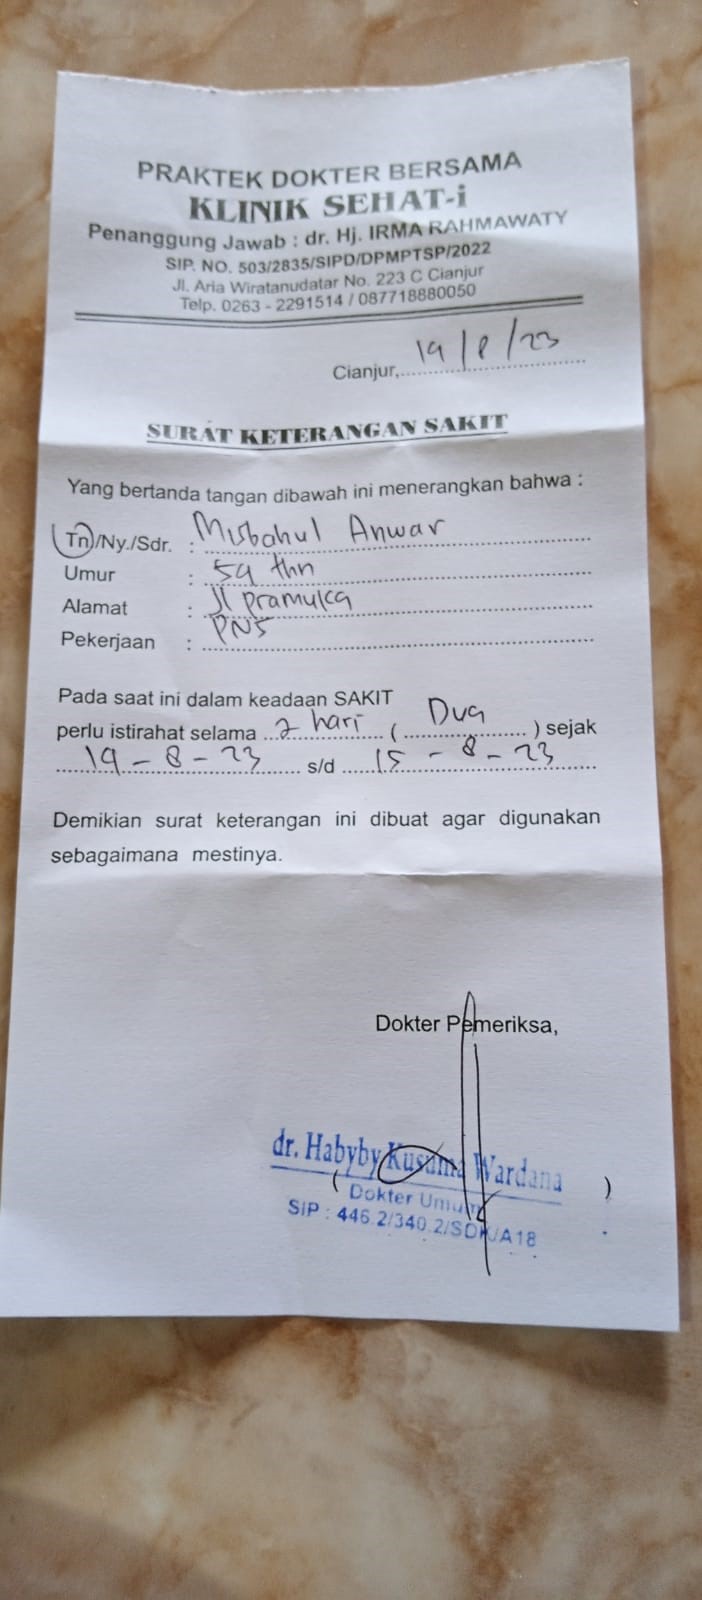 PRAKTEK DOKTER BERSAMA
KLINIK SEHAT-i
Penanggung Jawab : dr. Hj. IRMA RAHMAWATY
SIP. NO. 503/2835/SIPD/DPMPTSP/2022
Jl. Aria Wiratanudatar No. 223 C Cianjur
Telp. 0263 - 2291514 / 087718880050
Cianjur, 14/8/23
SURAT KETERANGAN SAKIT
Yang bertanda tangan dibawah ini menerangkan bahwa :
Tn/Ny./Sdr. : Misbahul Anwar
Umur : 54 thn
Alamat : Jl pramuka
Pekerjaan : PNS
Pada saat ini dalam keadaan SAKIT
perlu istirahat selama 2 hari ( Dua ) sejak
14-8-23 s/d 15-8-23
Demikian surat keterangan ini dibuat agar digunakan
sebagaimana mestinya.
Dokter Pemeriksa,
dr. Habyby Kusuma Wardana
( Dokter Umum )
SIP : 446.2/340.2/SDK/A18